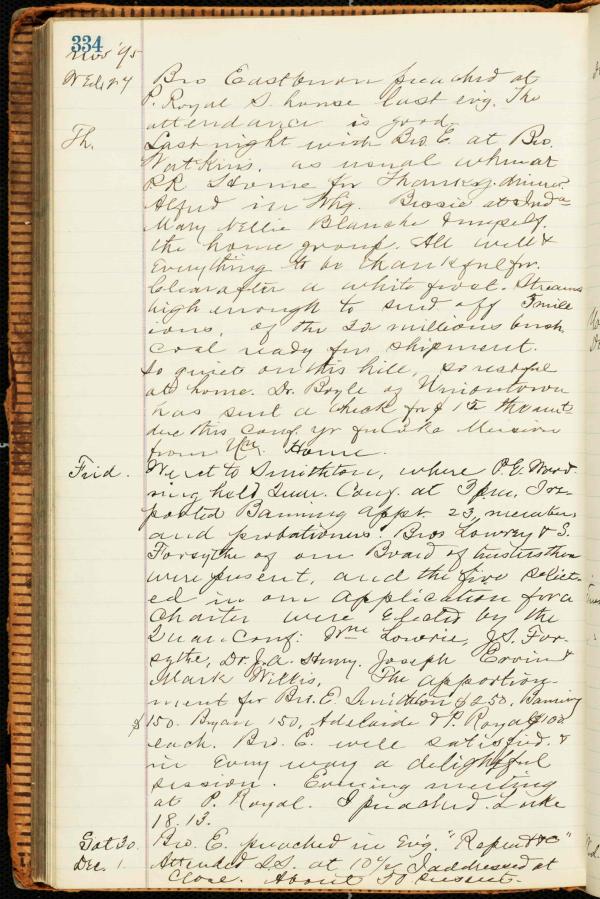 334
Nov '95
Wed. 27 Bro Eastburn preached at
P. Royal S. house last evg. The
attendance is good.
Th. Last night with Bro. E. at Bro.
Watkins. as usual
RR Home for Thanksg. dinner.
Alfred in Whg. Bessie at Inda
Mary Nellie Blanche & myself.
the home group. All well &
Everything to be thankful for.
Clear after a white frost. Streams
high enough to send off 5 mill
ions, of the 20 millions bush
coal ready for shipment.
So quiet on this hill, so restful
at home. Dr. Boyle of Uniontown
has sent a check for $ 15 the amt
due this Conf. yr for Mission
from Un. Home.
Frid. Went to Smithton, where P.E. Word
ing held Quar. Conf. at 3 pm. I re-
ported Banning appt. 23, members
and probationers. Bros Lowrey & S.
Forsythe of our Board of trustees then
were present, and the five select-
ed in our application for a
Charter were Elected by the
Quar. Conf: Wm Lowrie, J.S. For-
sythe, Dr. J.A. Henry. Joseph Ervin &
Mark Willis. The apportion-
ment for Bro. E. Smithton $250, Banning
$150. Bryan 150, Adelaide & P. Royal $100
each. Bro. E. well satisfied. &
in Every way a delightful
session. Evening meeting
at P. Royal. I preached. Luke
18.13.
Sat 30. Bro. E. preached in Evg. "Repent &c"
Dec. 1. Attended S.S. at 10 I addressed at
Close. About 50 present.